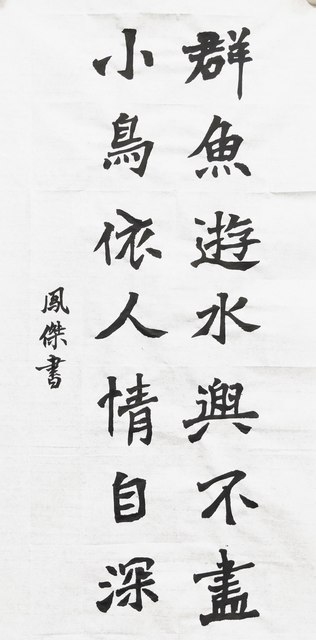 群魚遊水興不盡
小鳥依人情自深
鳳傑書